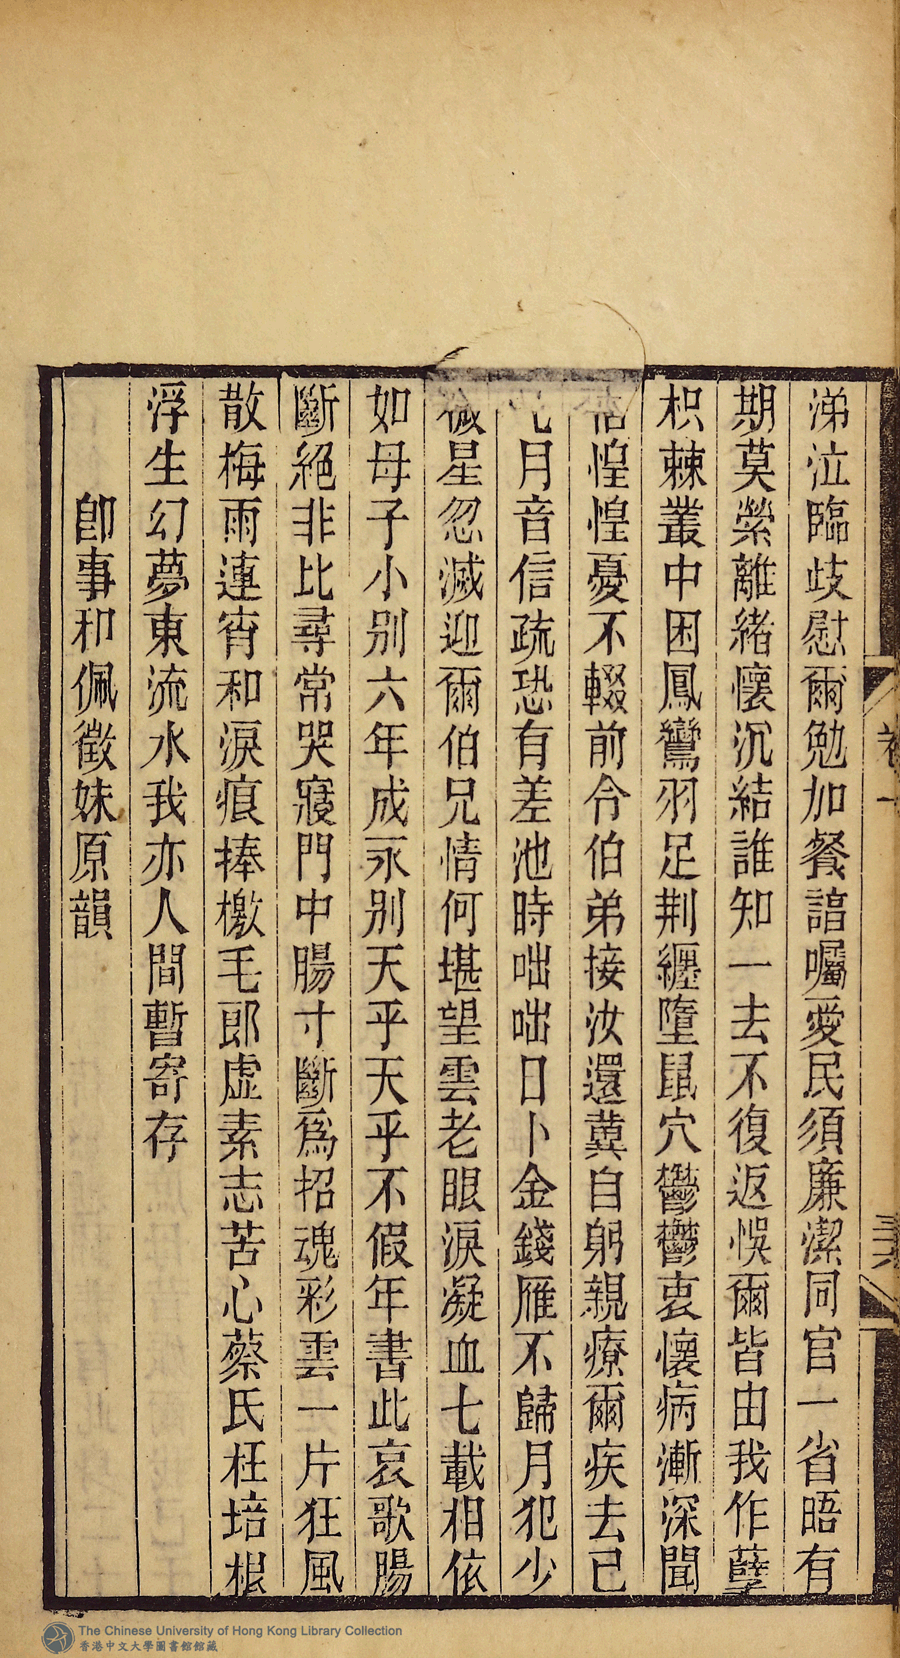 涕泣臨歧慰爾勉加餐諳囑愛民須廉潔同官一省晤有
期莫縈離緒懷沉結誰知一去不復返悞爾皆由我作孽
枳棘叢中困鳳鸞羽足荆纏墮鼠穴鬱鬱衷懷病漸深聞
惶惶憂不輟前令伯弟接汝還冀自躬親療爾疾去已
月音信疏恐有差池時咄咄日卜金錢雁不歸月犯少
微星忽滅迎爾伯兄情何堪望雲老眼淚凝血七載相依
如母子小别六年成永别天乎天乎不假年書此哀歌腸
斷絕非比尋常哭寢門中腸寸斷爲招魂彩雲一片狂風
散梅雨連宵和淚痕捧檄毛郎虛素志苦心蔡氏枉培根
浮生幻夢東流水我亦人間暫寄存
卽事和佩徵妹原韻
卷一
三六
The Chinese University of Hong Kong Library Collection
香港中文大學圖書館館藏